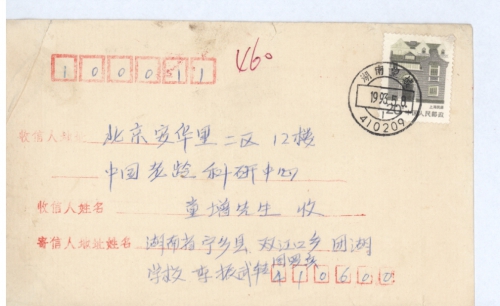 1000011
460
湖南
1993.5.
410209
20
中国人民邮政
收信人地址 北京安华里二区12楼
中国老龄科研中心
收信人姓名 董增先生 收
寄信人地址姓名 湖南省宁乡县双江口乡团湖
学校
410600